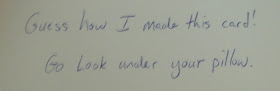 Guess how I made this card!
Go Look under your pillow.